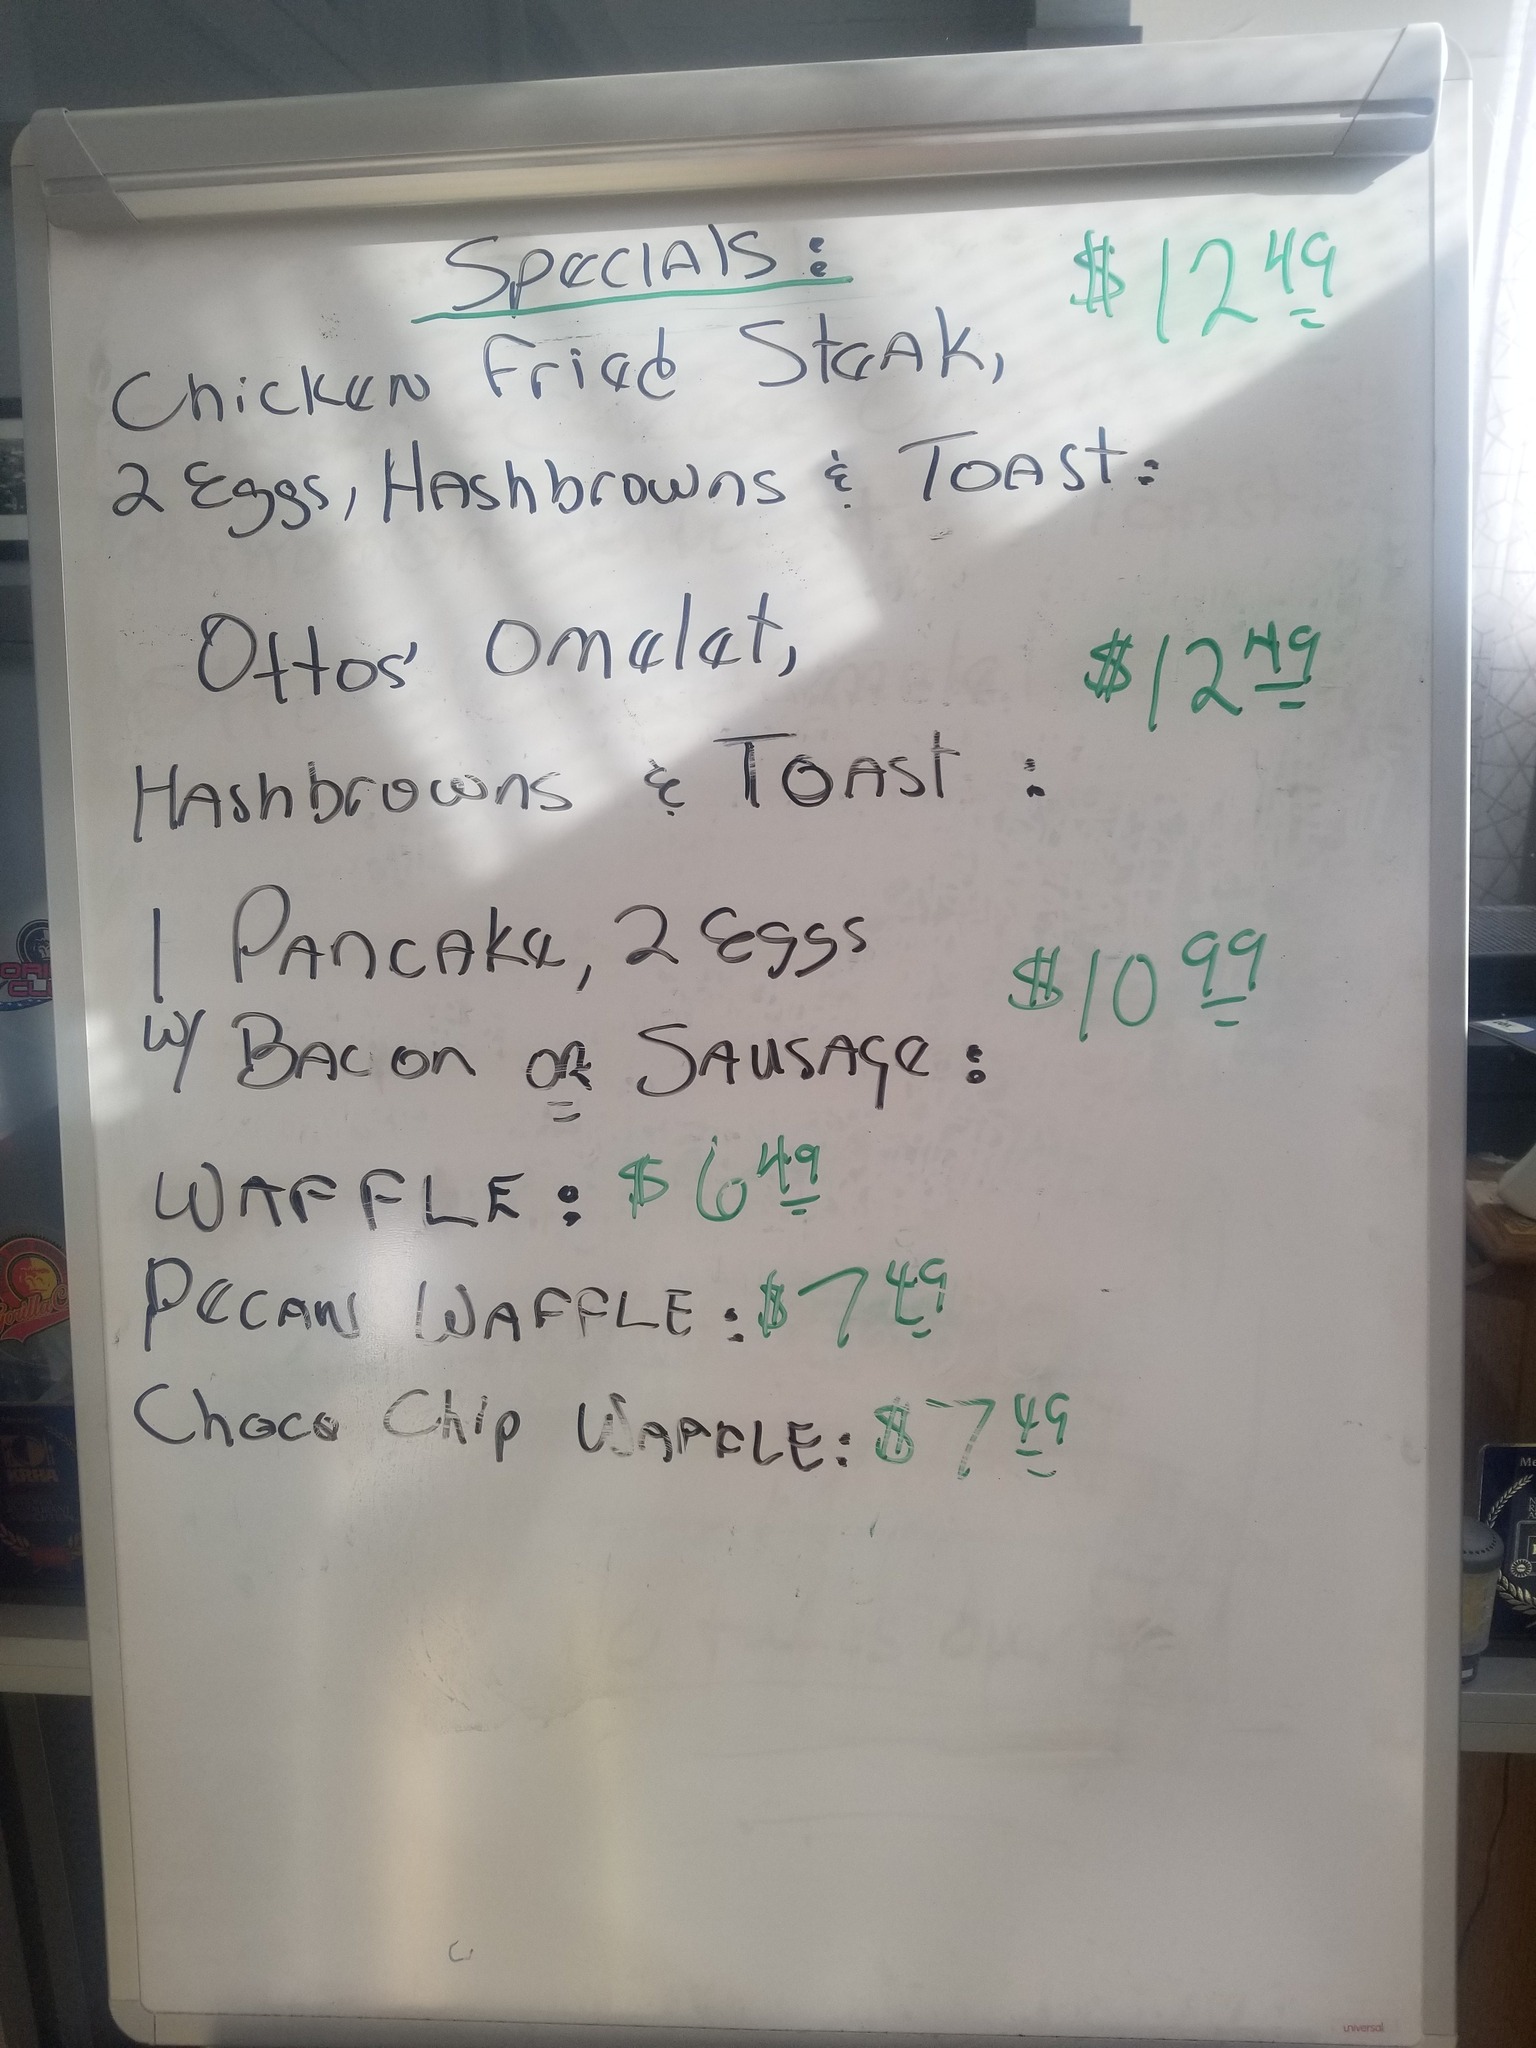 Specials: $12 49
Chicken Fried Steak,
2 Eggs, Hashbrowns & Toast:
Ottos' Omelet, $12 49
Hashbrowns & Toast :
1 Pancake, 2 Eggs $10 99
w/ Bacon or Sausage:
WAFFLE: $6 49
Pecan WAFFLE: $7 49
Choco Chip WAFFLE: $7 49
KRHA
universal